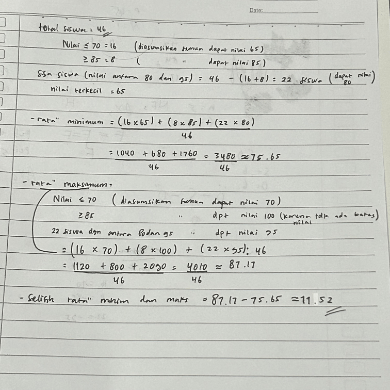 Date:
total siswa : 46
Nilai ≤ 70 = 16 (diasumsikan semua dapat nilai 65)
≥ 85 = 8 ( " dapat nilai 85)
sisa siswa (nilai antara 80 dan 95) = 46 - (16+8) = 22 siswa (dapat nilai 80)
nilai terkecil = 65
- rata" minimum = (16 x 65) + (8 x 85) + (22 x 80)
46
= 1040 + 680 + 1760 = 3480 ≈ 75.65
46 46
- rata" maksimum =
Nilai ≤ 70 (diasumsikan semua dapat nilai 70)
≥ 85 " dpt nilai 100 (karena tdk ada batas nilai)
22 siswa dgn antara 80 dan 95 " dpt nilai 95
= (16 x 70) + (8 x 100) + (22 x 95) : 46
= 1120 + 800 + 2090 = 4010 ≈ 87.17
46 46
- Selisih rata" minim dan maks = 87.17 - 75.65 ≈ 11.52